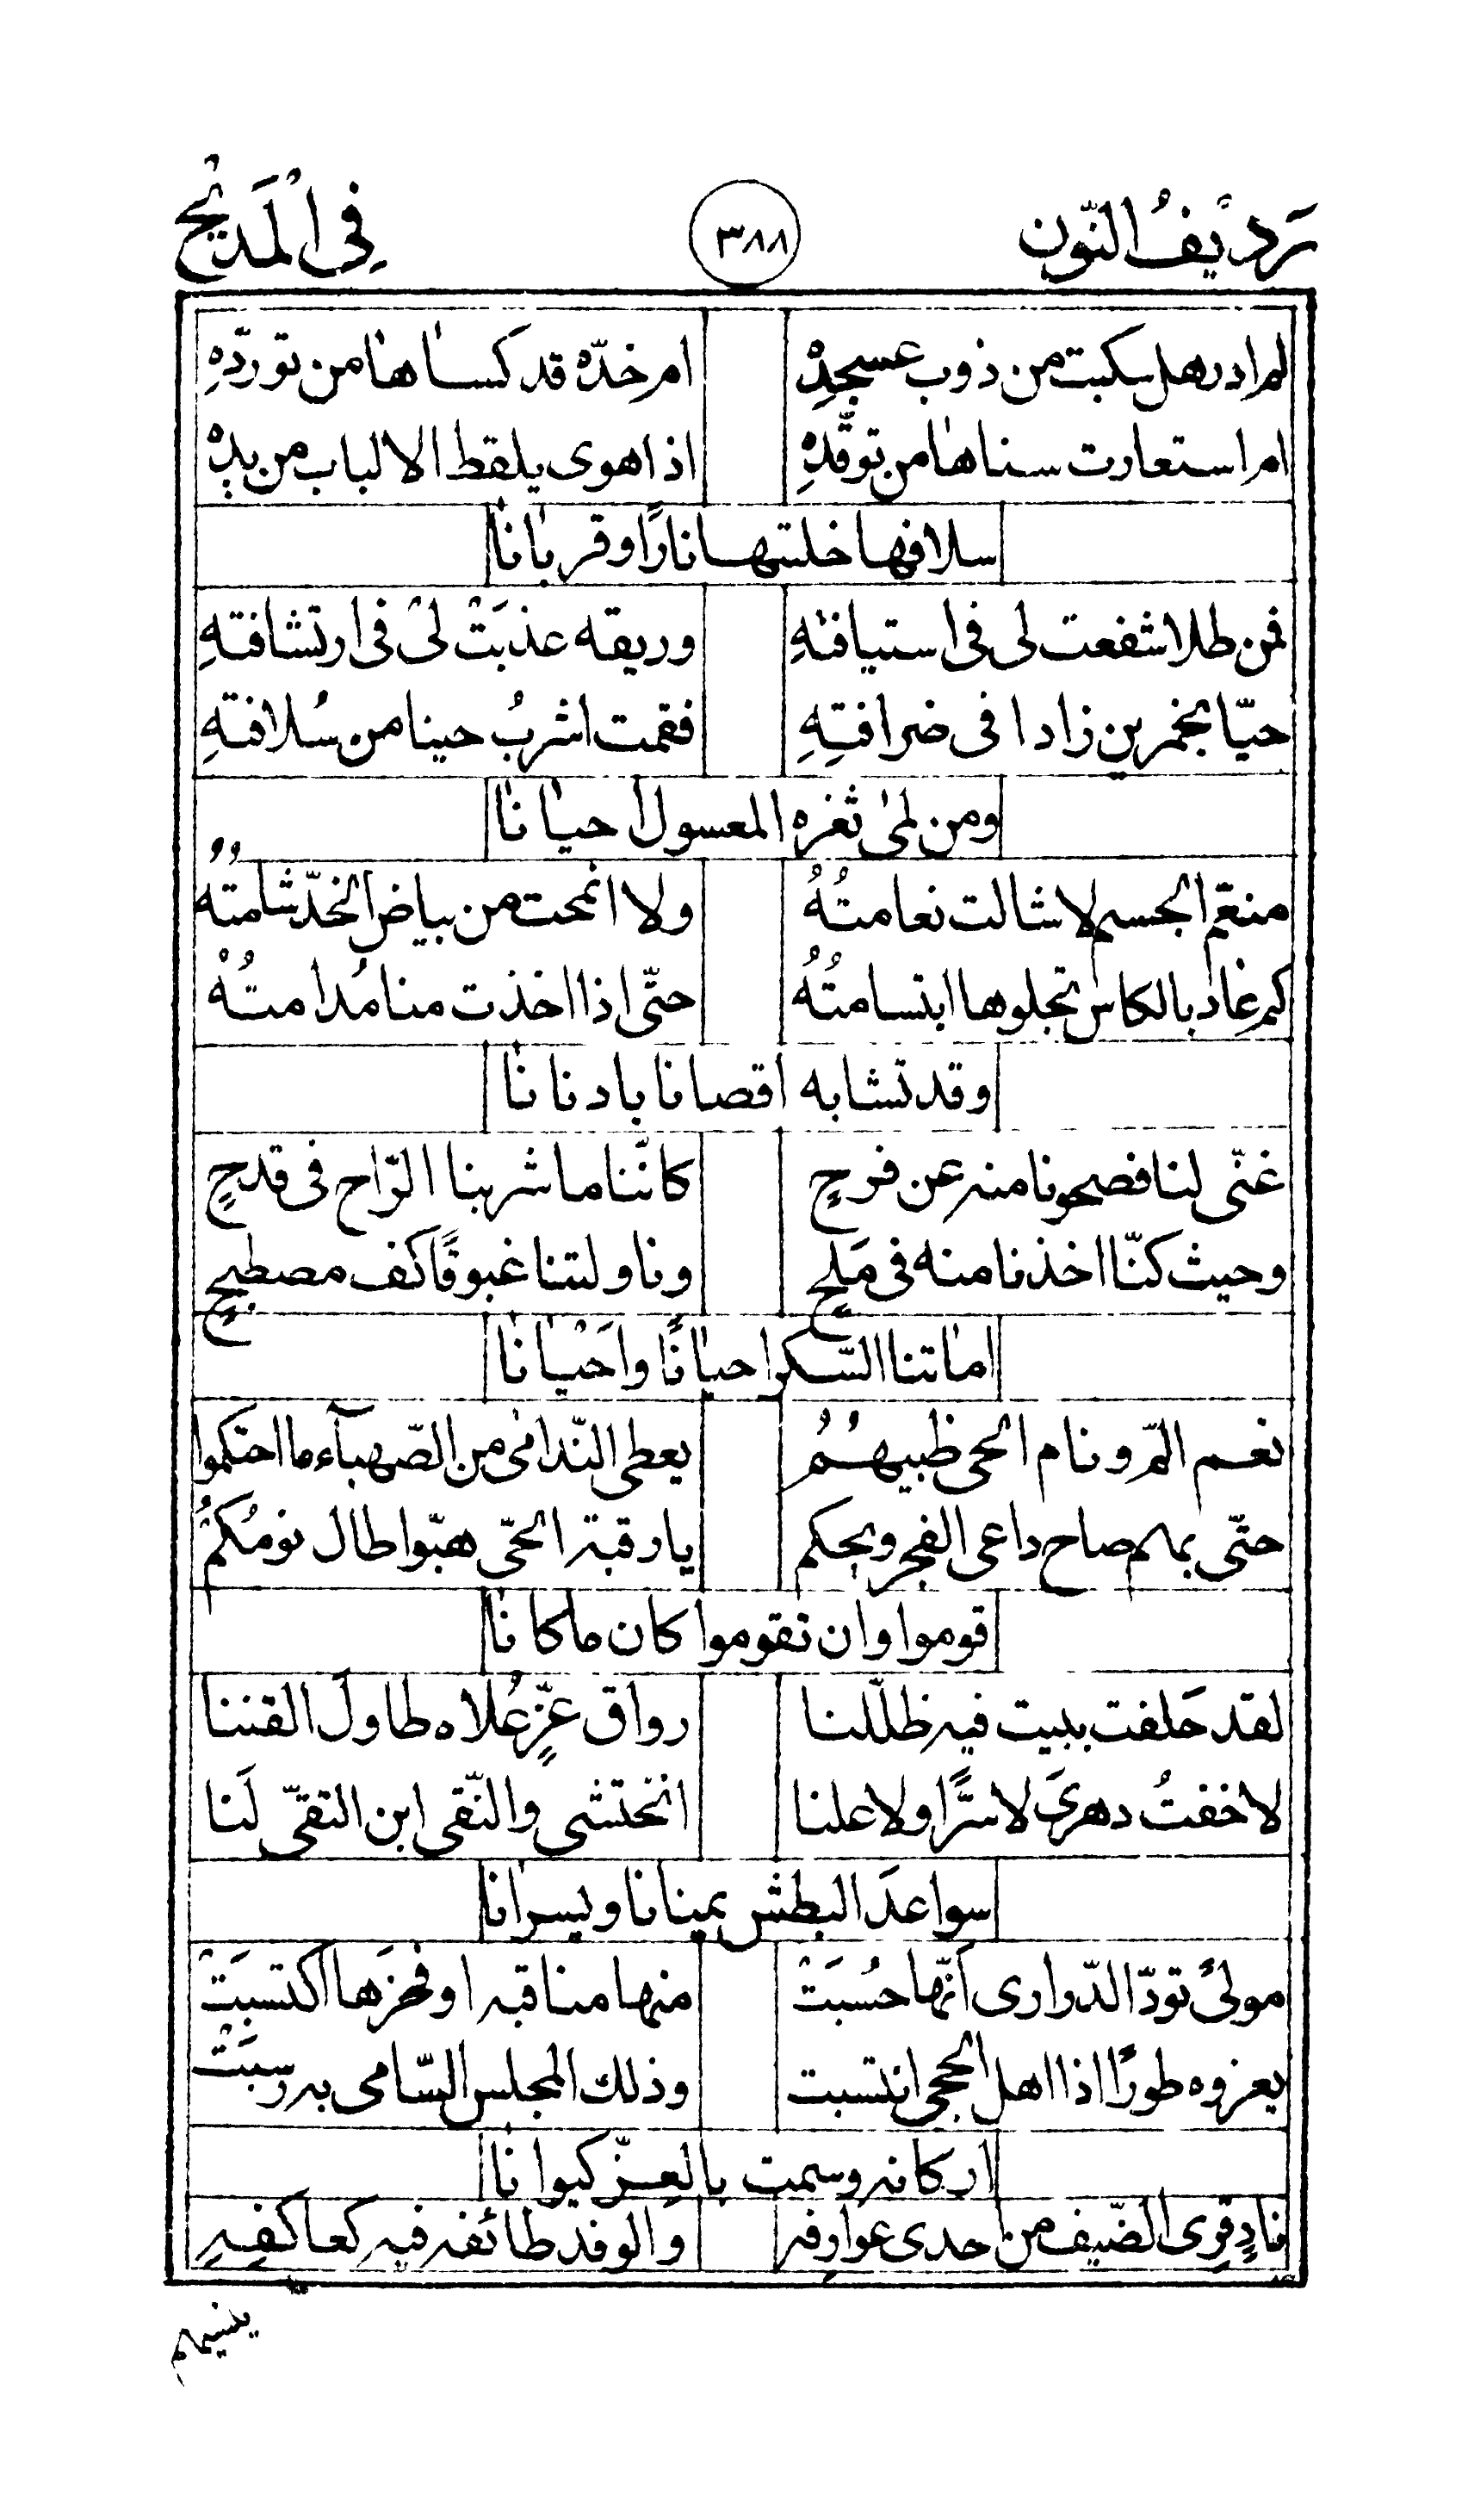 رَدِيْفُ النّون ٣٨٨ فِي الْمَدِيْحُ
لم ادر هل سكبت من ذوب عسجدِهْ ام خدّهْ قد كساها من تورّدِهِ
ام استعارت سناها من توقّدِهْ اذا هوى يلقط الالباب من يدِهْ
سلافها خلتها نارًا وقربانا
فمن طلا شفعت لى فى استيافتهِ وريقه عذبَتْ لىْ فى ارتشافتهِ
حيّا بخمرين زادا فى ضرافتِهِ فقمت اشربُ حينا من سُلافتهِ
ومن لمىٰ ثغره المعسول احيانا
منعّم الجسم لا شالت نعامتُهُ ولا انمحت من بياض الخدّ شامتُهُ
كم غاد بالكاس تجلوها ابتسامتُهُ حتّى اذا اخذت منا مُدامتُهُ
وقد تشابه اقصانا بادنانا
غنّى لنا فصحونا منه عن فرحٍ كانّنا ما شربنا الرّاح فى قدحٍ
وحيث كنّا اخذنا منه فى مَلحٍ وناولتنا غبوقًا كف مصطبحٍ
اماتنا السّكر احيانًا واَحْيانا
نعم المّ ونام الحى ظبيهُمُ يعطى النّدامىٰ من الصّهبآء ما احتكموا
حتّى بهم صاح داعى الفجر ويحكم يا رقبة الحىّ هبّوا طال نومُكمُ
قوموا وان تقوموا كان ما كانا
لقد حَلفت ببيت فيه ظلّلنا رواق عزٍّ عُلاه طاولَ القننا
لا خفتُ دهرىَ لا سرًّا ولا علنا انختشى والنّقى ابن التقىّ لَنا
سواعدَ البطش يمنانا ويسرانا
مولىً تودّ الدّرارى اَنّها حُسبَتْ منها مناقبه او فخرَها اكتسبَتْ
يعزوه طورًا اذا اهل الحجى انتسبت وذلك المجلس السّامى به رسبَتْ
اركانه وسمت بالعزّ كيوانا
نادٍ قِرى الضّيف من احدى عوارفه والوفد طائفه فيه كعاكفِهِ